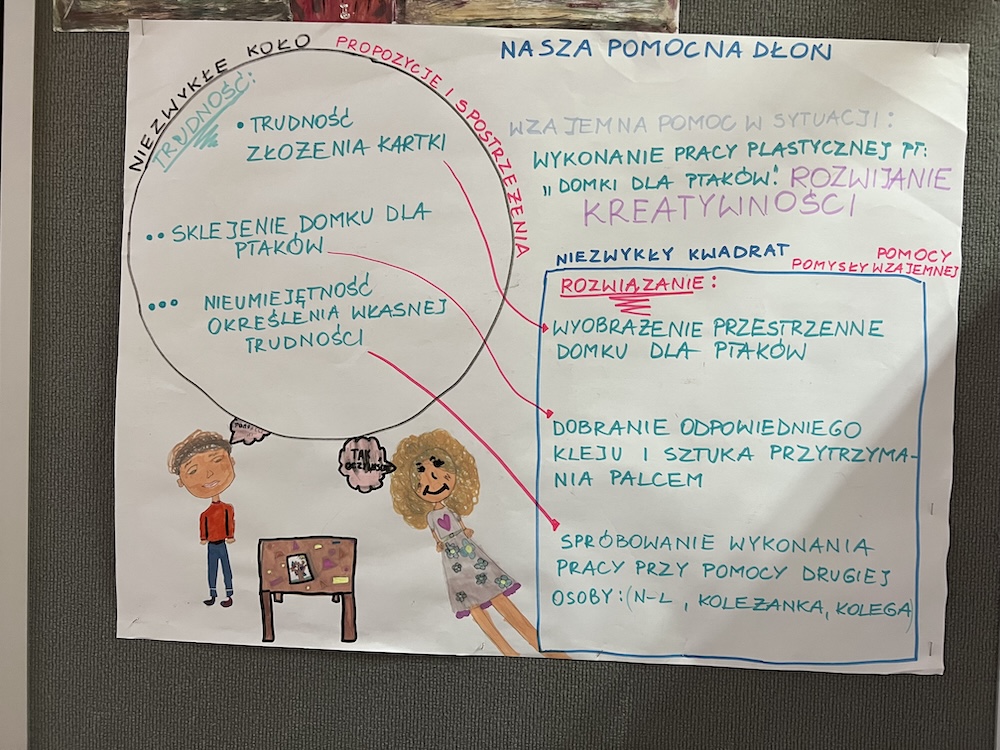 NASZA POMOCNA DŁOŃ
NIEZWYKŁE KOŁO
PROPOZYCJE I SPOSTRZEŻENIA
TRUDNOŚĆ:
• TRUDNOŚĆ
ZŁOŻENIA KARTKI
•• SKLEJENIE DOMKU DLA
PTAKÓW
••• NIEUMIEJĘTNOŚĆ
OKREŚLENIA WŁASNEJ
TRUDNOŚCI
WZAJEMNA POMOC W SYTUACJI:
WYKONANIE PRACY PLASTYCZNEJ PT:
„DOMKI DLA PTAKÓW." ROZWIJANIE
KREATYWNOŚCI
NIEZWYKŁY KWADRAT
POMOCY
POMYSŁY WZAJEMNEJ
ROZWIĄZANIE:
WYOBRAŻENIE PRZESTRZENNE
DOMKU DLA PTAKÓW
DOBRANIE ODPOWIEDNIEGO
KLEJU I SZTUKA PRZYTRZYMA-
NIA PALCEM
SPRÓBOWANIE WYKONANIA
PRACY PRZY POMOCY DRUGIEJ
OSOBY: (N-L, KOLEŻANKA, KOLEGA)
TAK